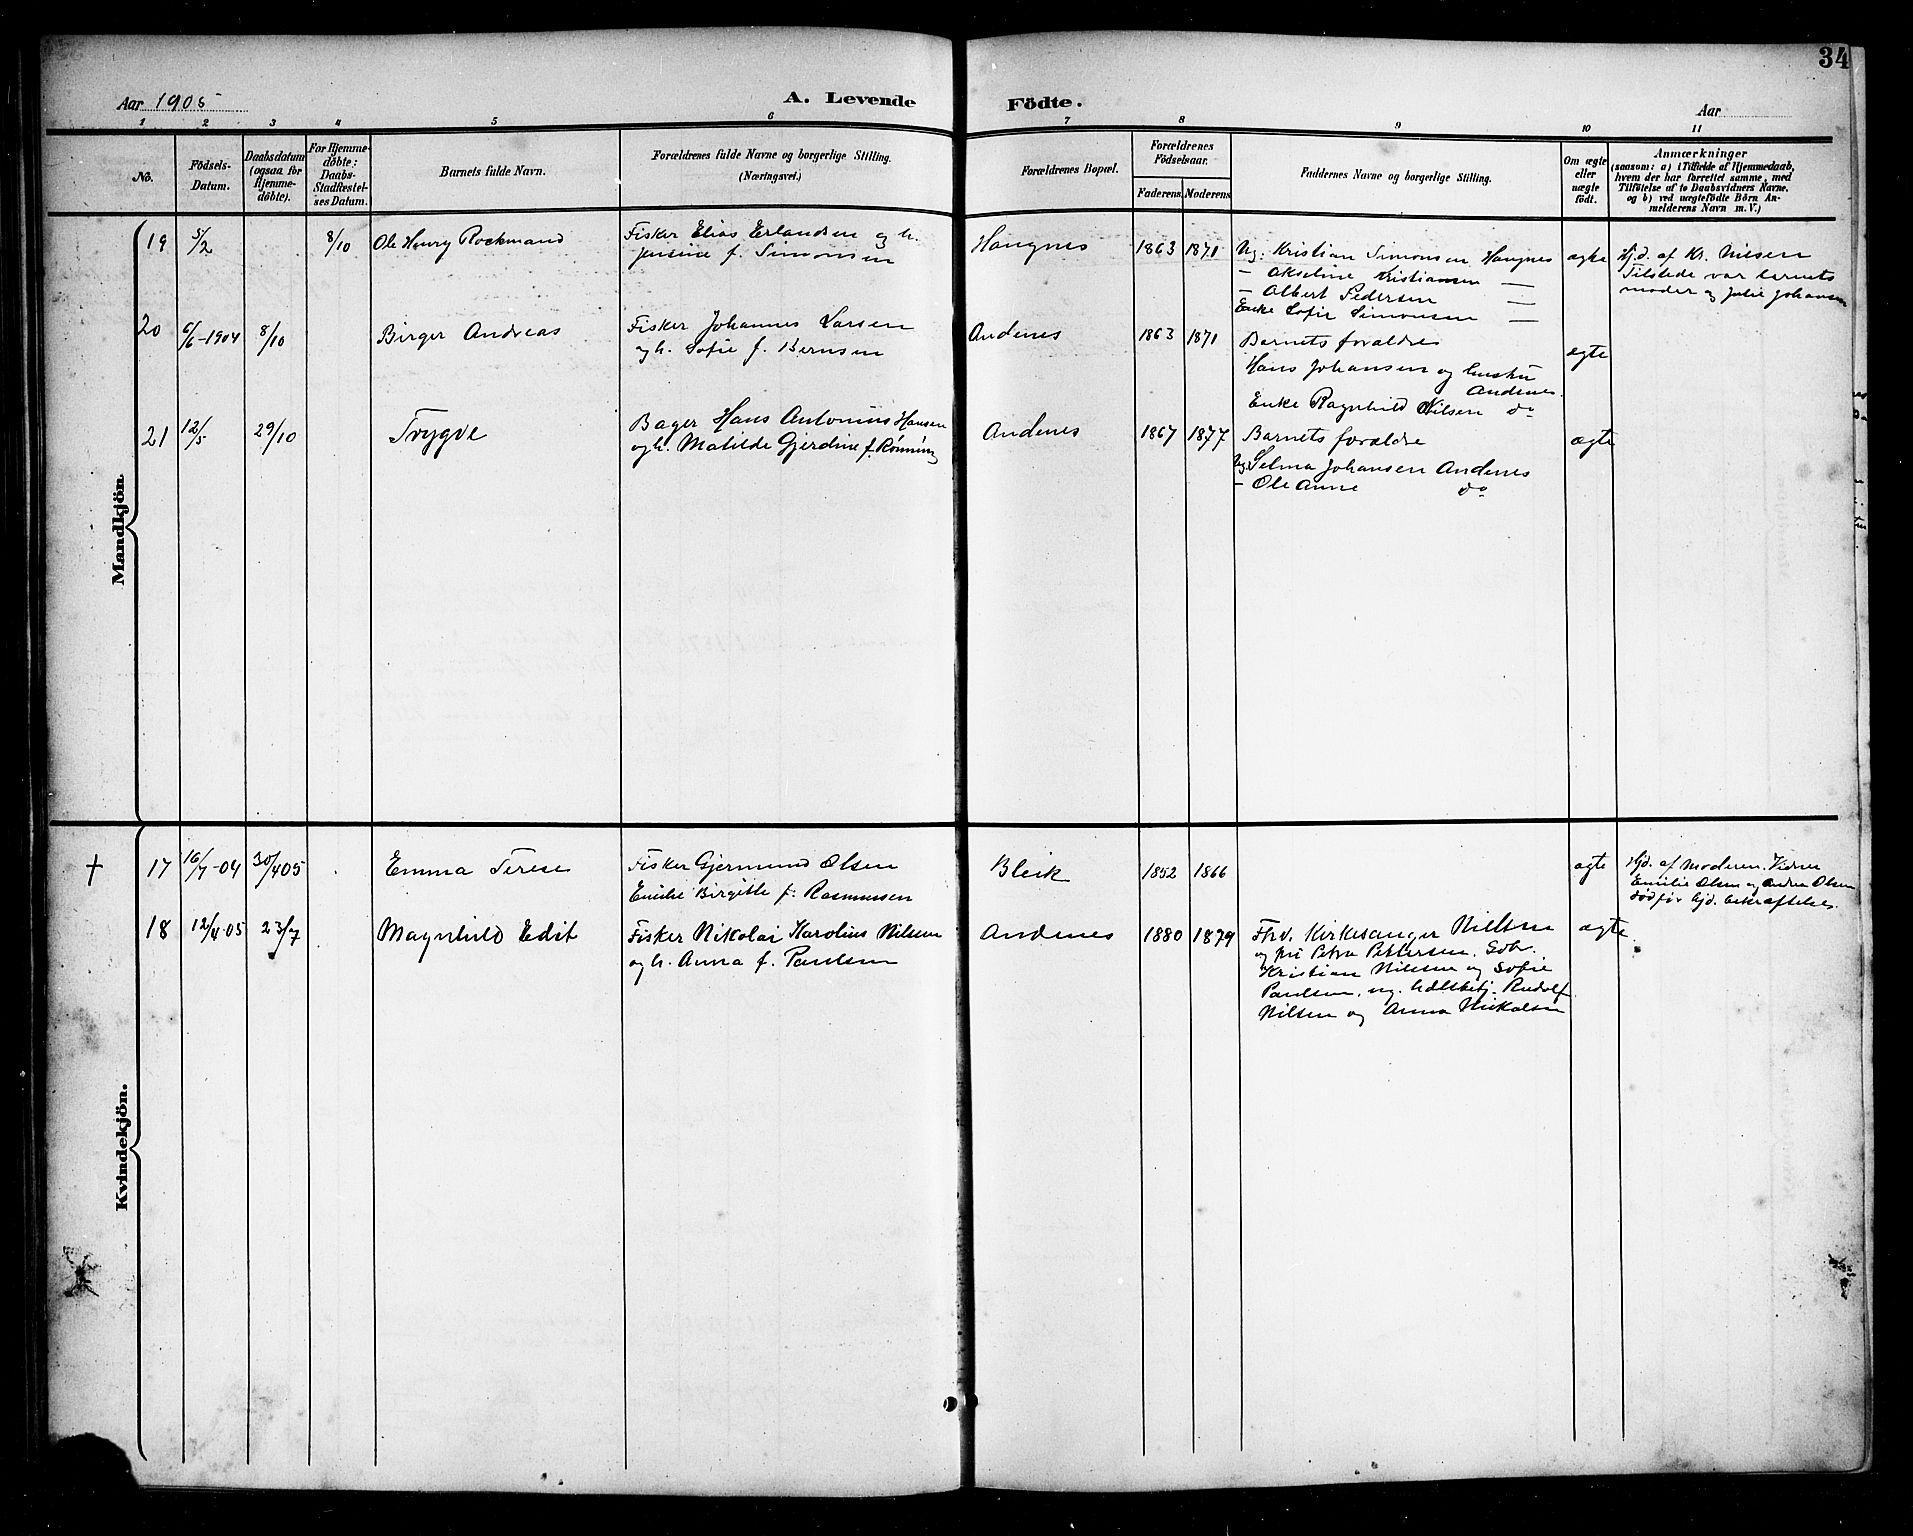 34
Aar 1905
A. Levende Födte.
Aar
1 2 3 4 5 6 7 8 9 10 11
No.
Födsels-
Datum.
Daabsdatum
(ogsaa for
Hjemme-
döbte).
For Hjemme-
döbte:
Daabs-
Stadfæstel-
ses Datum.
Barnets fulde Navn.
Forældrenes fulde Navne og borgerlige Stilling.
(Næringsvei.)
Forældrenes Bopæl.
Forældrenes
Födselsaar.
Faderens Moderens
Faddernes Navne og borgerlige Stilling.
Om ægte
eller
uægte
födt.
Anmærkninger
(saasom: a) i Tilfælde af Hjemmedaab,
hvem der har forrettet samme, med
Tilföielse af to Daabsvidners Navne.
og b) ved uægtefödte Börn An-
melderens Navn m. V.)
Mandkjön.
19 5/2 8/10 Ole Henry Rockmand
Fisker Elias Erlandsen og h.
Jensine f. Simonsen
Haugnes 1863 1871
Ug. Kristian Simonsen Haugnes
— Akseline Kristiansen —
— Albert Pedersen —
Enke Sofie Simonsen —
ægte
Hjd. af Kr. Nilsen
Tilstede var barnets
moder og Julie Johansen
20 6/6-1904 8/10 Birger Andreas
Fisker Johannes Larsen
og h. Sofie f. Bernsen
Andenes 1863 1871
Barnets forældre
Hans Johansen og hustru
Andenes
Enke Ragnhild Nilsen do
ægte
21 12/5 29/10 Trygve
Bager Hans Antonius Hansen
og h. Matilde Gjerdine f. Rønning
Andenes 1867 1877
Barnets forældre
Ug. Selma Johansen Andenes
— Ole Anne do
ægte
Kvindekjön.
† 17 16/7-04 30/4 05 Emma Terese
Fisker Gjermund Olsen
Emilie Birgitte f. Rasmussen
Bleik 1852 1866
ægte
Hjd. af Moderen. Vidner
Emilie Olsen og Andrea Olsen
Død før hjd. bekræftelse.
18 12/4-05 23/7 Magnhild Edit
Fisker Nikolai Karolius Nilsen
og h. Anna f. Paulsen
Andenes 1880 1879
Fhv. Kirkesanger Nilsen
og fru Petra Pettersen. Gbr.
Kristian Nilsen og Sofie
Paulsen, ug. Rudolf
Nilsen og Anna Nikolsen
ægte